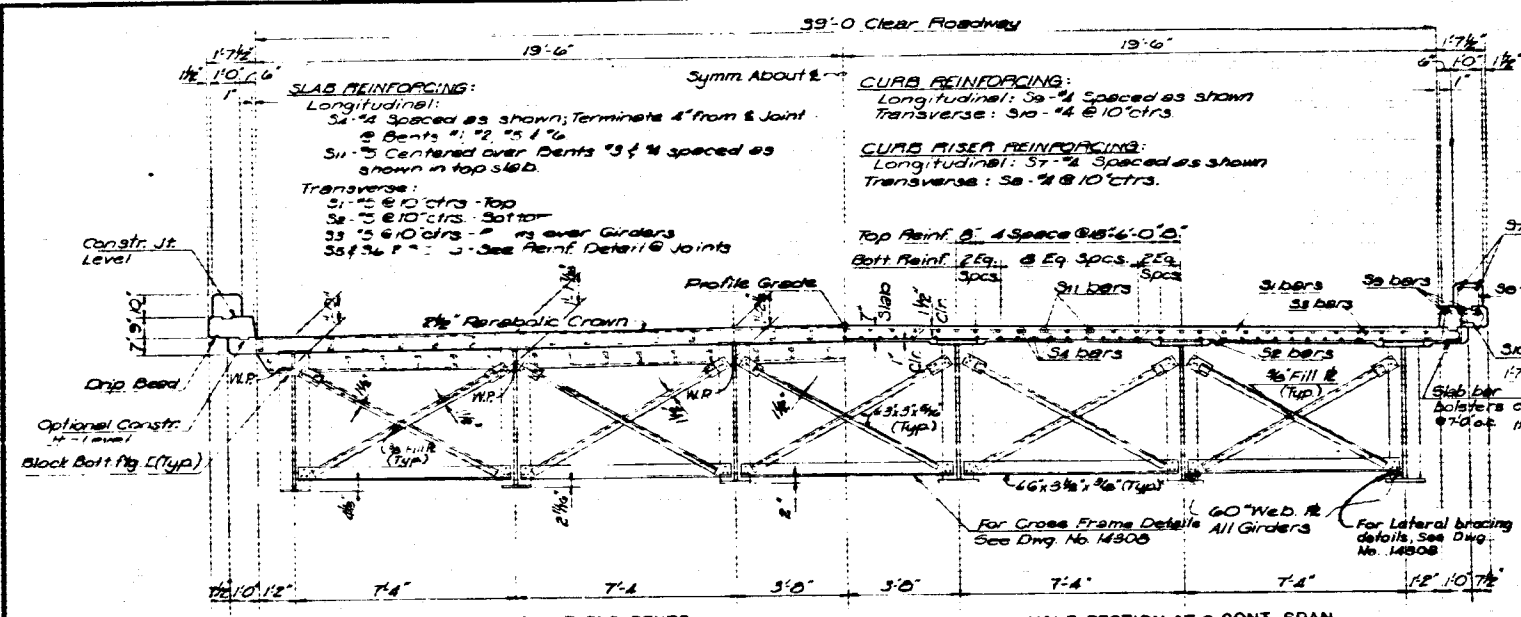 39'-0 Clear Roadway
1'-7½" 19'-6" 19'-6" 1'-7½"
1½" 1'-0" 6" Symm About ℄ 6" 1'-0" 1½"
1" 1"
SLAB REINFORCING:
Longitudinal:
S4-#4 Spaced as shown; Terminate 4" from ℄ Joint
@ Bents #1, #2, #5 & #6
S11-#5 Centered over Bents #3 & #4 spaced as
shown in top slab.
Transverse:
S1-#5 @ 10" ctrs - Top
S2-#5 @ 10" ctrs. - Bottom
S3 #5 @ 10" ctrs - over Girders
S5 & S6 - See Reinf. Detail @ Joints
CURB REINFORCING:
Longitudinal: S9-#4 Spaced as shown
Transverse: S10-#4 @ 10" ctrs.
CURB RISER REINFORCING:
Longitudinal: S7-#4 Spaced as shown
Transverse: S8-#4 @ 10" ctrs.
Constr. Jt.
Level
Top Reinf. 8" 4 Space @ 18"=6'-0" 8"
Bott. Reinf. 2 Eq. Spcs. 8 Eq. Spcs. 2 Eq. Spcs.
Profile Grade
7" Slab
1½" Clr.
S11 bars
S1 bars
S3 bars
S9 bars
2½" Parabolic Crown
7" 9" 10"
S4 bars
S2 bars
1" Clr.
Drip Bead
W.P.
W.P.
W.P.
Optional Constr.
Jt - Level
Block Bott flg ℄ (Typ.)
⅜ Fill ℞
(Typ.)
(Typ.)
Fill ℞
(Typ.)
Slab bar
bolsters
2 1/16"
2"
(Typ.)
60" Web. ℞
All Girders
For Cross Frame Details
See Dwg. No. 14308
For Lateral bracing
details, See Dwg.
No. 14308
7½" 1'-0" 1'-2" 7'-4" 7'-4 3'-8" 3'-8" 7'-4" 7'-4" 1'-2" 1'-0" 7½"